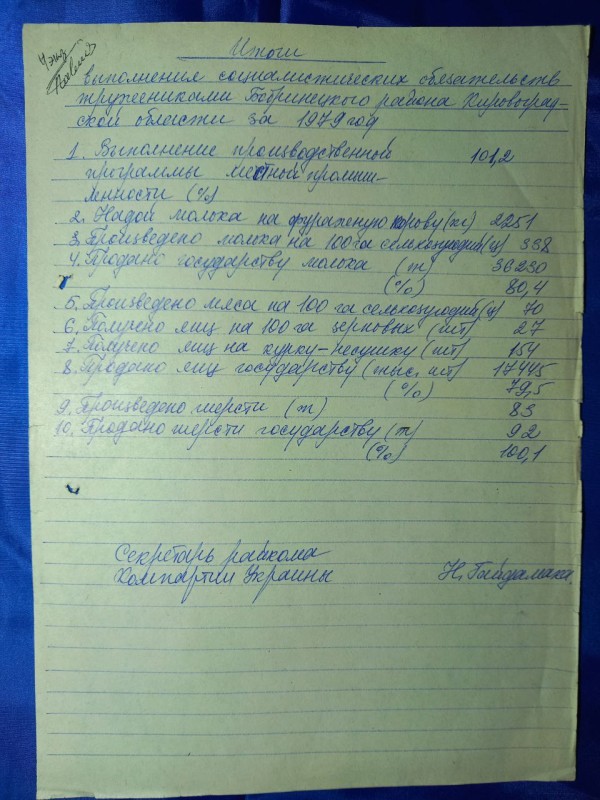 4 экз
Итоги
выполнения социалистических обязательств
тружениками Бобринецкого района Кировоград-
ской области за 1979 год
1. Выполнение производственной 101,2
программы местной промыш-
ленности (%)
2. Надой молока на фуражную корову (кг) 2251
3. Произведено молока на 100 га сельхозугодий (ц) 338
4. Продано государству молока (т) 36230
(%) 80,4
5. Произведено мяса на 100 га сельхозугодий (ц) 70
6. Получено яиц на 100 га зерновых (шт) 27
7. Получено яиц на курку-несушку (шт) 154
8. Продано яиц государству (тыс. шт) 17445
(%) 79,5
9. Произведено шерсти (т) 83
10. Продано шерсти государству (т) 92
(%) 100,1
Секретарь райкома
Компартии Украины Н. Гайдамака